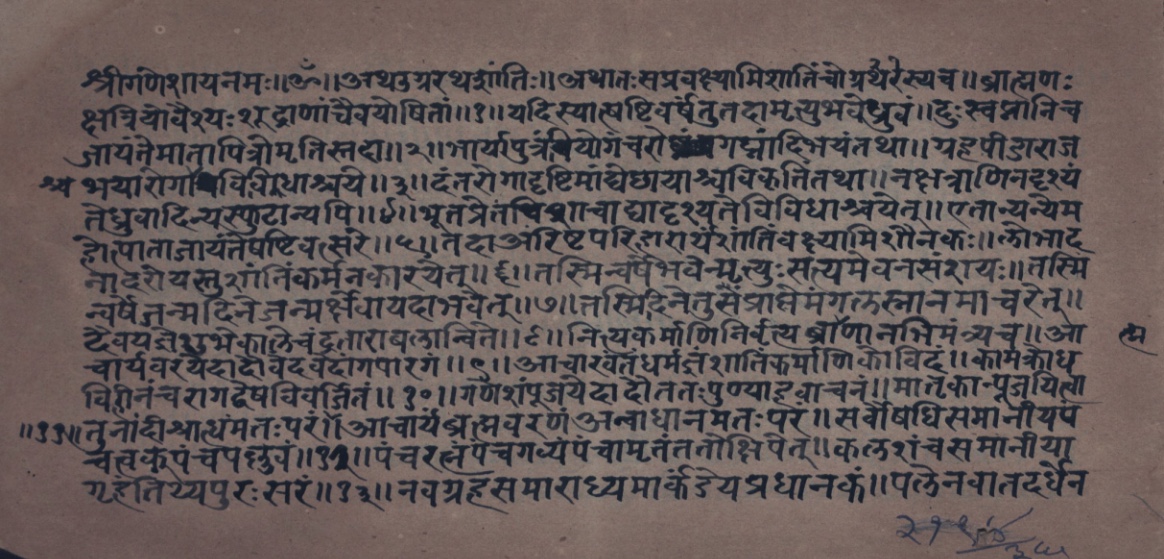 श्रीगणेशायनमः॥ॐ॥अथउग्ररथशांतिः॥अथातःसंप्रवक्ष्यामिशांतिंचोग्ररथस्यच॥ब्राह्मण
क्षत्रियोवैश्यःशूद्राणांचैवयोषितां॥१॥यदिस्यात्षष्टिवर्षेतुतदामृत्युभवेध्रुवं॥दुःस्वप्नानिच
जायंतेमातापित्रोमृतिस्तदा॥२॥भार्यापुत्रवियोगंच तथा॥ग्रहपीडाराज
भयारोगा विविधाश्रये॥३॥दंतरोगादृष्टिमांद्येछायाश्चविकृतितथा॥नक्षत्राणिनदृश्यं
तेध्रुवादिन्यस्फुटान्यपि॥४॥भूतप्रेतपिशाचाद्यादृश्यतेविविधाश्रयेत्॥एतान्यन्यैम
होत्पाताजायंतेषष्टिवत्सरे॥५॥तदाअरिष्टपरिहारार्थंशांतिंवक्ष्यामिशौनकः॥लोभाद
नादरोयस्तुशांतिंकर्मनकारयेत्॥६॥तस्मिन्वर्षेभवेन्मृत्युःसत्यमेवनसंशयः॥तस्मि
न्वर्षेजन्मदिनेजन्मर्क्षेवायदाभवेत्॥७॥तस्मिंदिनेतुसंप्राप्तेमंगलस्नानमाचरेत्॥
दैवयज्ञेशुभेकालेचंद्रताराबलान्विते॥८॥नित्यकर्माणिनिर्वृत्यब्राह्मणानभिमंत्र्यच॥आ
चार्यवरयेदादौवेदवेदांगपारगं॥९॥आचारवंतंधर्मज्ञंशांतिकर्माणिकोविदं॥कामक्रोध
विहीनंचरागद्वेषविवर्जितं॥१०॥गणेशंपूजयेदादौततःपुण्याहवाचनं॥मातृकान्पूजयित्वा
॥११॥तुनांदीश्राद्धंमतःपरं॥आचार्यंब्रह्मवरणंअन्वाधानमतःपरं॥सर्वौषधिसमानीयपं
चत्वकंपंचपल्लवं॥१२॥पंचरत्नंपंचगव्यंपंचामृतंततोक्षिपेत्॥कलशंचसमानीया
गृहतिथ्यपुरःसरं॥१३॥नवग्रहसमाराध्यमार्कंडेयप्रधानकं॥पलेनवातदर्धेन